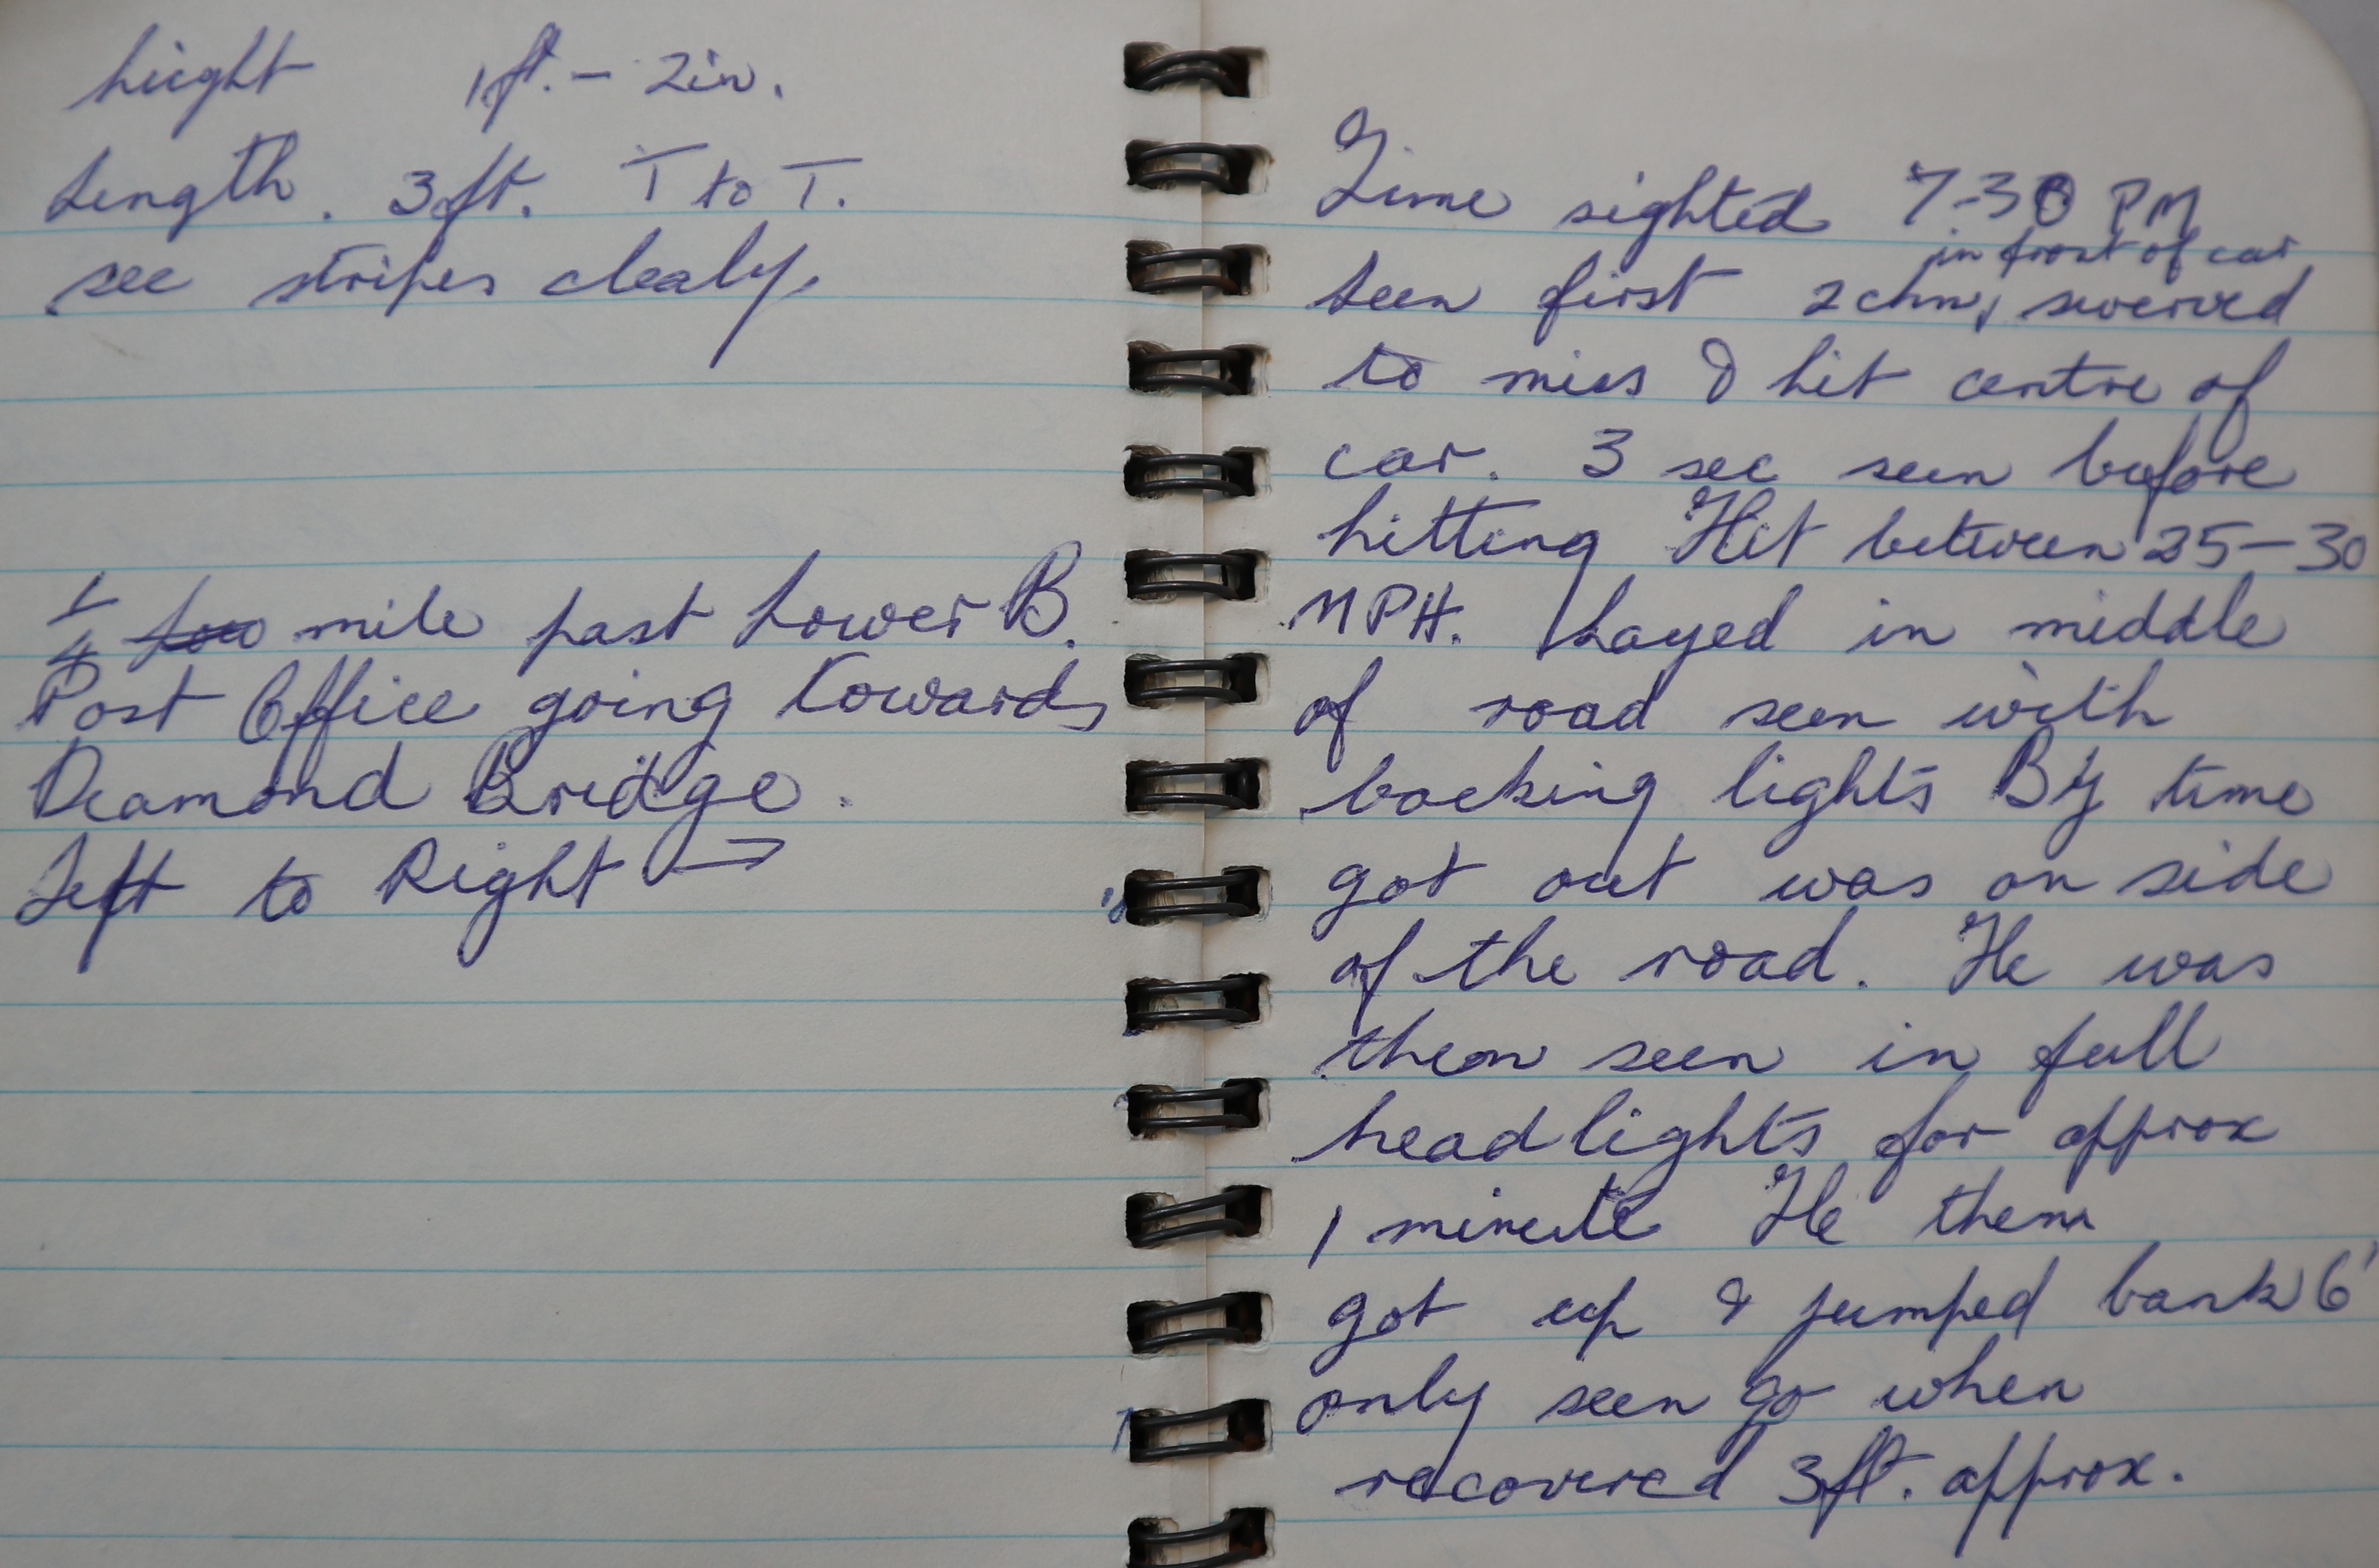 height 1ft. - 2in.
Length. 3ft. T to T.
see stripes clealy.
1/4 mile past Lower B.
Post Office going towards
Diamond Bridge.
Left to Right →
Time sighted 7-30 PM
in front of car
seen first 2 chn, swerved
to miss & hit centre of
car. 3 sec seen before
hitting Hit between 25-30
MPH. Layed in middle
of road seen with
backing lights By time
got out was on side
of the road. He was
then seen in full
headlights for approx
1 minute He then
got up & jumped bank 6'
only seen go when
recovered 3ft. approx.